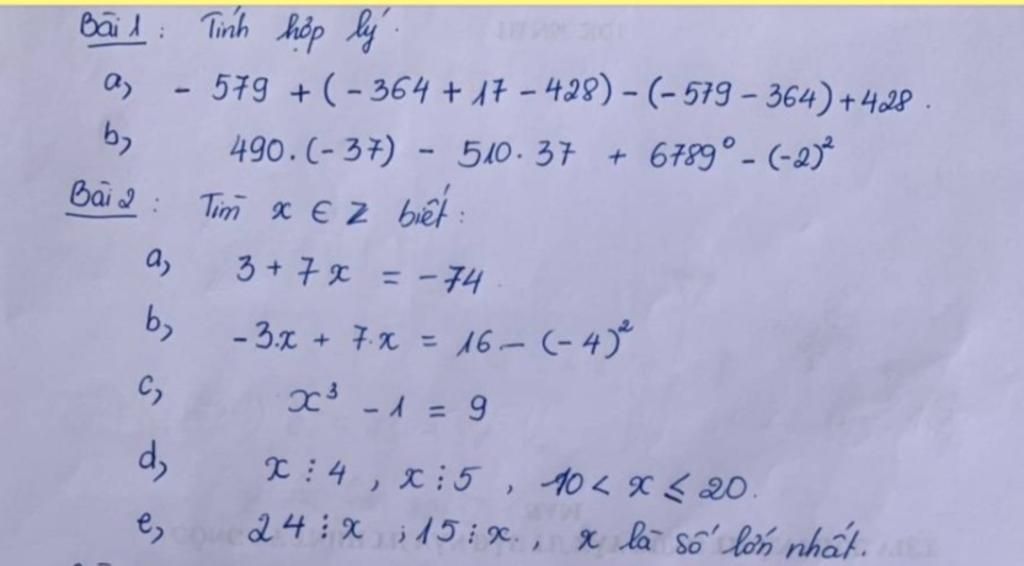 Bài 1 : Tính hợp lý.
a, - 579 + ( - 364 + 17 - 428) - (- 579 - 364) + 428 .
b, 490.(- 37) - 510. 37 + 6789⁰ - (-2)²
Bài 2 : Tìm x ∈ Z biết :
a, 3 + 7x = - 74
b, - 3.x + 7.x = 16 - (- 4)²
c, x³ - 1 = 9
d, x ⋮ 4 , x ⋮ 5 , 10 < x ≤ 20.
e, 24 ⋮ x ; 15 ⋮ x , x là số lớn nhất.